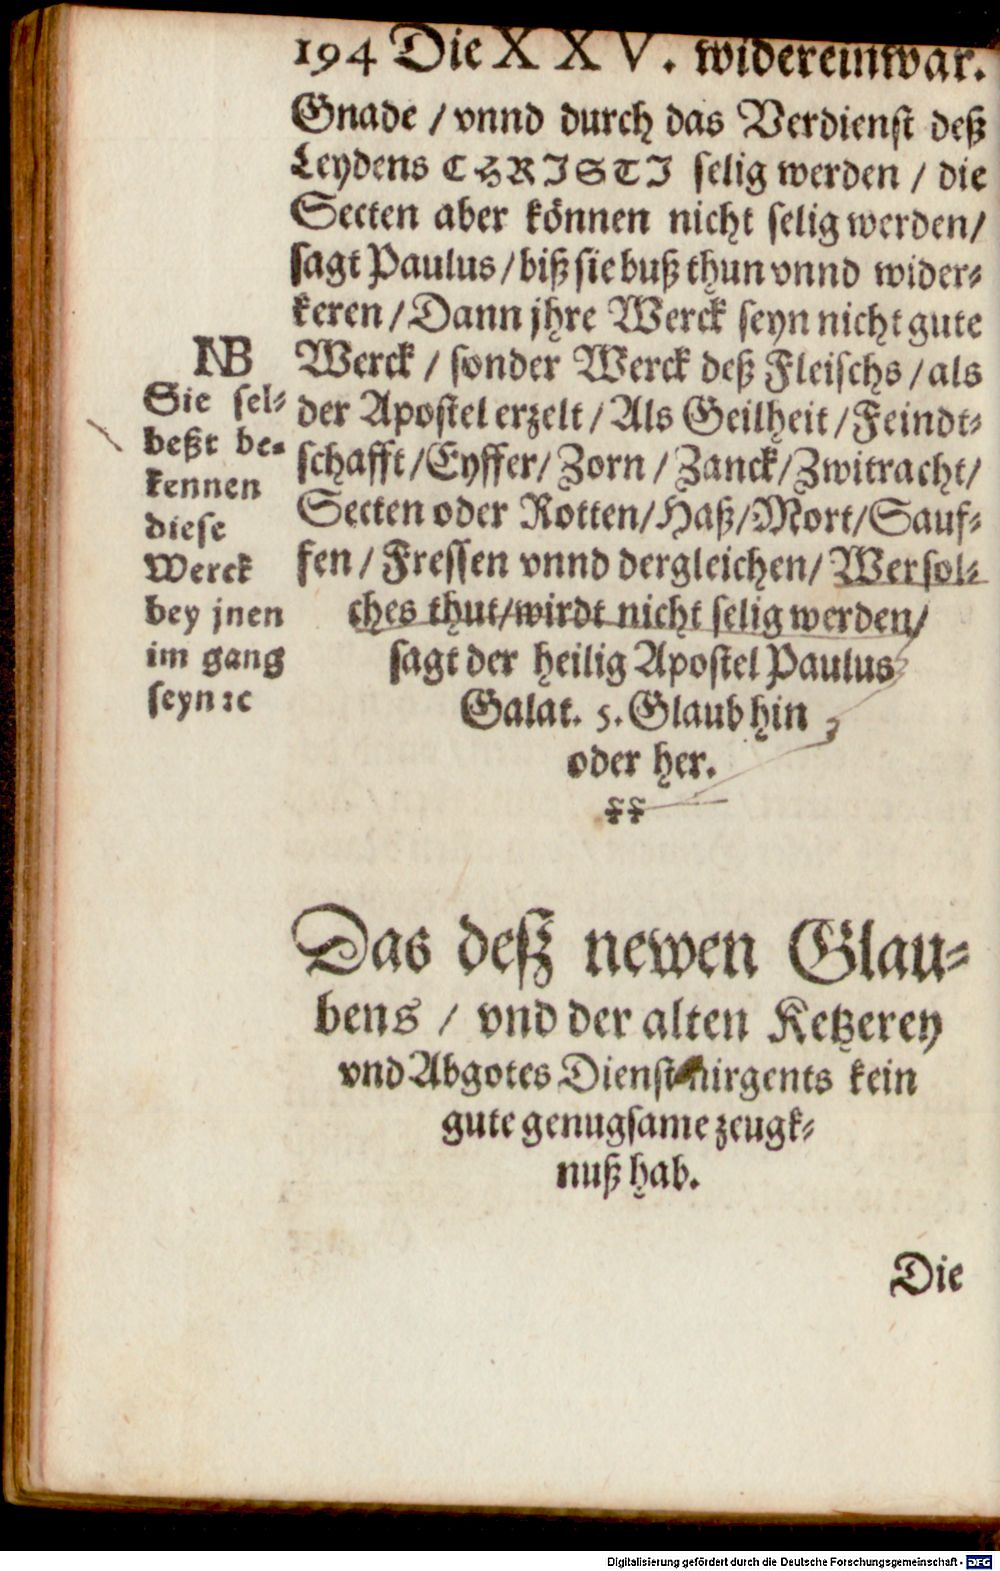 194 Die XXV. widereinwar.
Gnade / vnnd durch das Verdienst deß
Leydens CHRISTI selig werden / die
Secten aber können nicht selig werden/
sagt Paulus / biß sie buß thun vnnd wider-
keren / Dann jhre Werck seyn nicht gute
Werck / sonder Werck deß Fleischs / als
der Apostel erzelt / Als Geilheit / Feindt-
schafft / Eyffer / Zorn / Zanck / Zwitracht /
Secten oder Rotten / Haß / Mort / Sauf-
fen / Fressen vnnd dergleichen / Wer sol-
ches thut / wirdt nicht selig werden /
sagt der heilig Apostel Paulus
Galat. 5. Glaub hin
oder her.
NB
Sie sel-
beßt be-
kennen
diese
Werck
bey jnen
im gang
seyn ꝛc
Das deß newen Glau-
bens / vnd der alten Ketzerey
vnd Abgotes Dienst nirgents kein
gute genugsame zeugk-
nuß hab.
Die
Digitalisierung gefördert durch die Deutsche Forschungsgemeinschaft - DFG